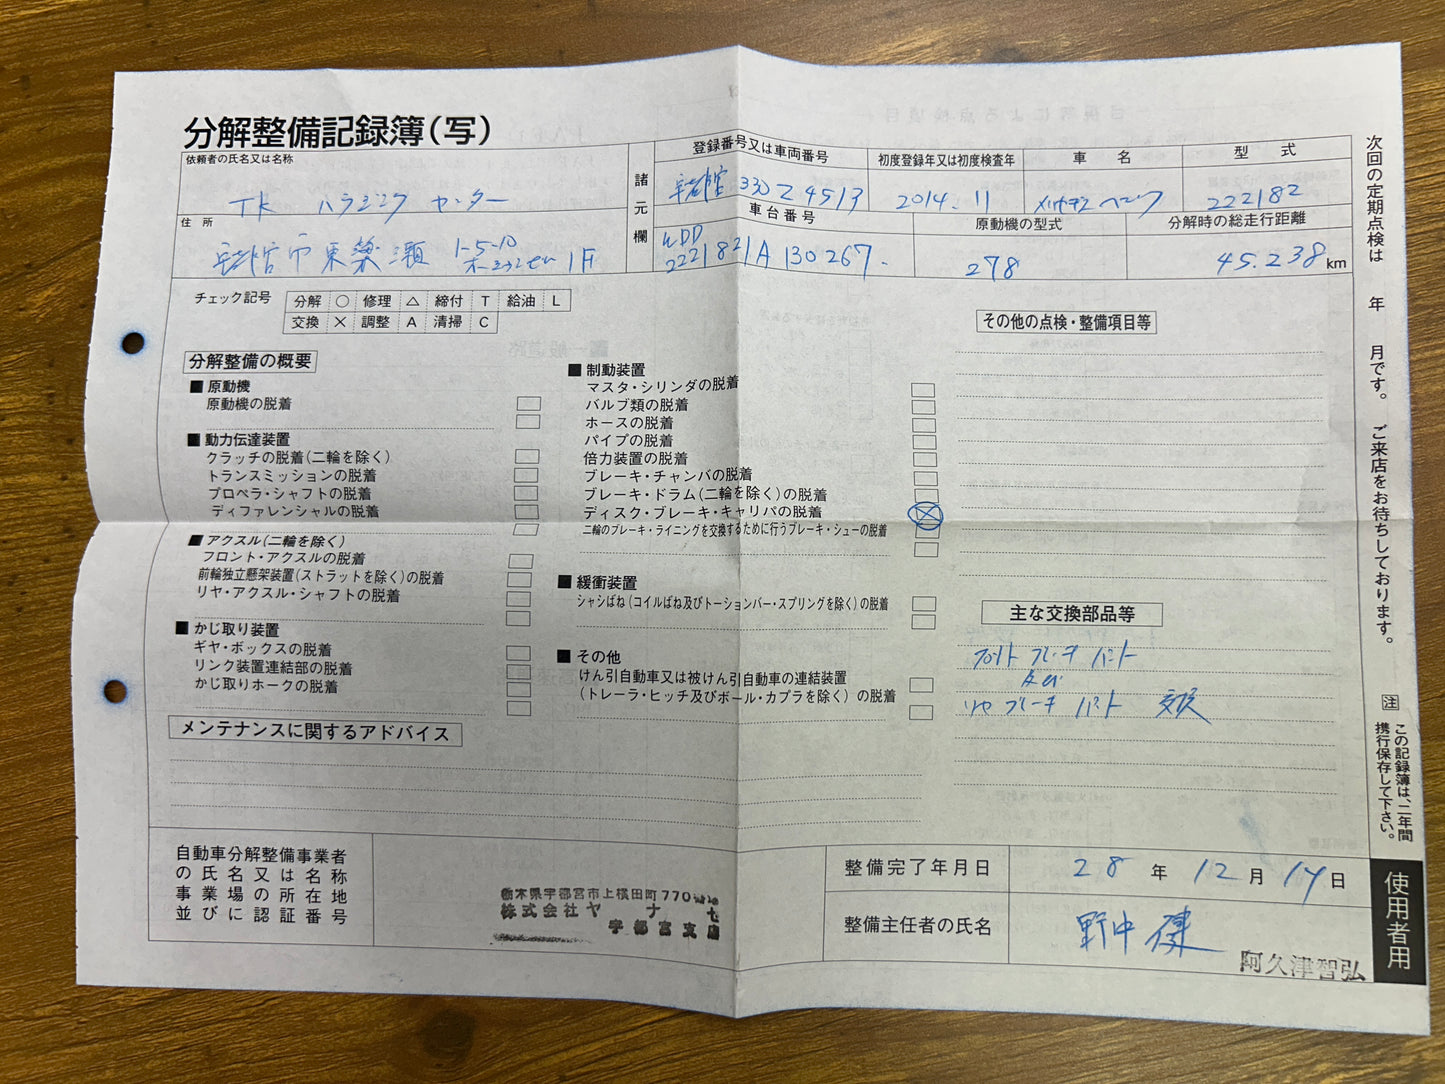 分解整備記録簿(写)
依頼者の氏名又は名称
TK ハウジング センター
住所
宇都宮市東簗瀬 1-5-10
1F
諸元欄
登録番号又は車両番号
宇都宮 330 Z 4513
初度登録年又は初度検査年
2014.11
車名
型式
222182
車台番号
WDD
2221821A130267
原動機の型式
278
分解時の総走行距離
45.238 km
チェック記号
分解 ○ 修理 △ 締付 T 給油 L
交換 × 調整 A 清掃 C
分解整備の概要
■ 原動機
原動機の脱着
■ 動力伝達装置
クラッチの脱着(二輪を除く)
トランスミッションの脱着
プロペラ・シャフトの脱着
ディファレンシャルの脱着
■ アクスル(二輪を除く)
フロント・アクスルの脱着
前輪独立懸架装置(ストラットを除く)の脱着
リヤ・アクスル・シャフトの脱着
■ かじ取り装置
ギヤ・ボックスの脱着
リンク装置連結部の脱着
かじ取りホークの脱着
■ 制動装置
マスタ・シリンダの脱着
バルブ類の脱着
ホースの脱着
パイプの脱着
倍力装置の脱着
ブレーキ・チャンバの脱着
ブレーキ・ドラム(二輪を除く)の脱着
ディスク・ブレーキ・キャリパの脱着
二輪のブレーキ・ライニングを交換するために行うブレーキ・シューの脱着
■ 緩衝装置
シャシばね(コイルばね及びトーションバー・スプリングを除く)の脱着
■ その他
けん引自動車又は被けん引自動車の連結装置
(トレーラ・ヒッチ及びボール・カプラを除く)の脱着
その他の点検・整備項目等
主な交換部品等
フロント ブレーキ パット
及び
リヤ ブレーキ パット 交換
メンテナンスに関するアドバイス
自動車分解整備事業者
の氏名又は名称
事業場の所在地
並びに認証番号
栃木県宇都宮市上横田町770
株式会社ヤナセ
宇都宮支店
整備完了年月日
28 年 12 月 14 日
整備主任者の氏名
野中 健
阿久津智弘
次回の定期点検は 年 月です。 ご来店をお待ちしております。
注 この記録簿は、二年間
携行保存して下さい。
使用者用